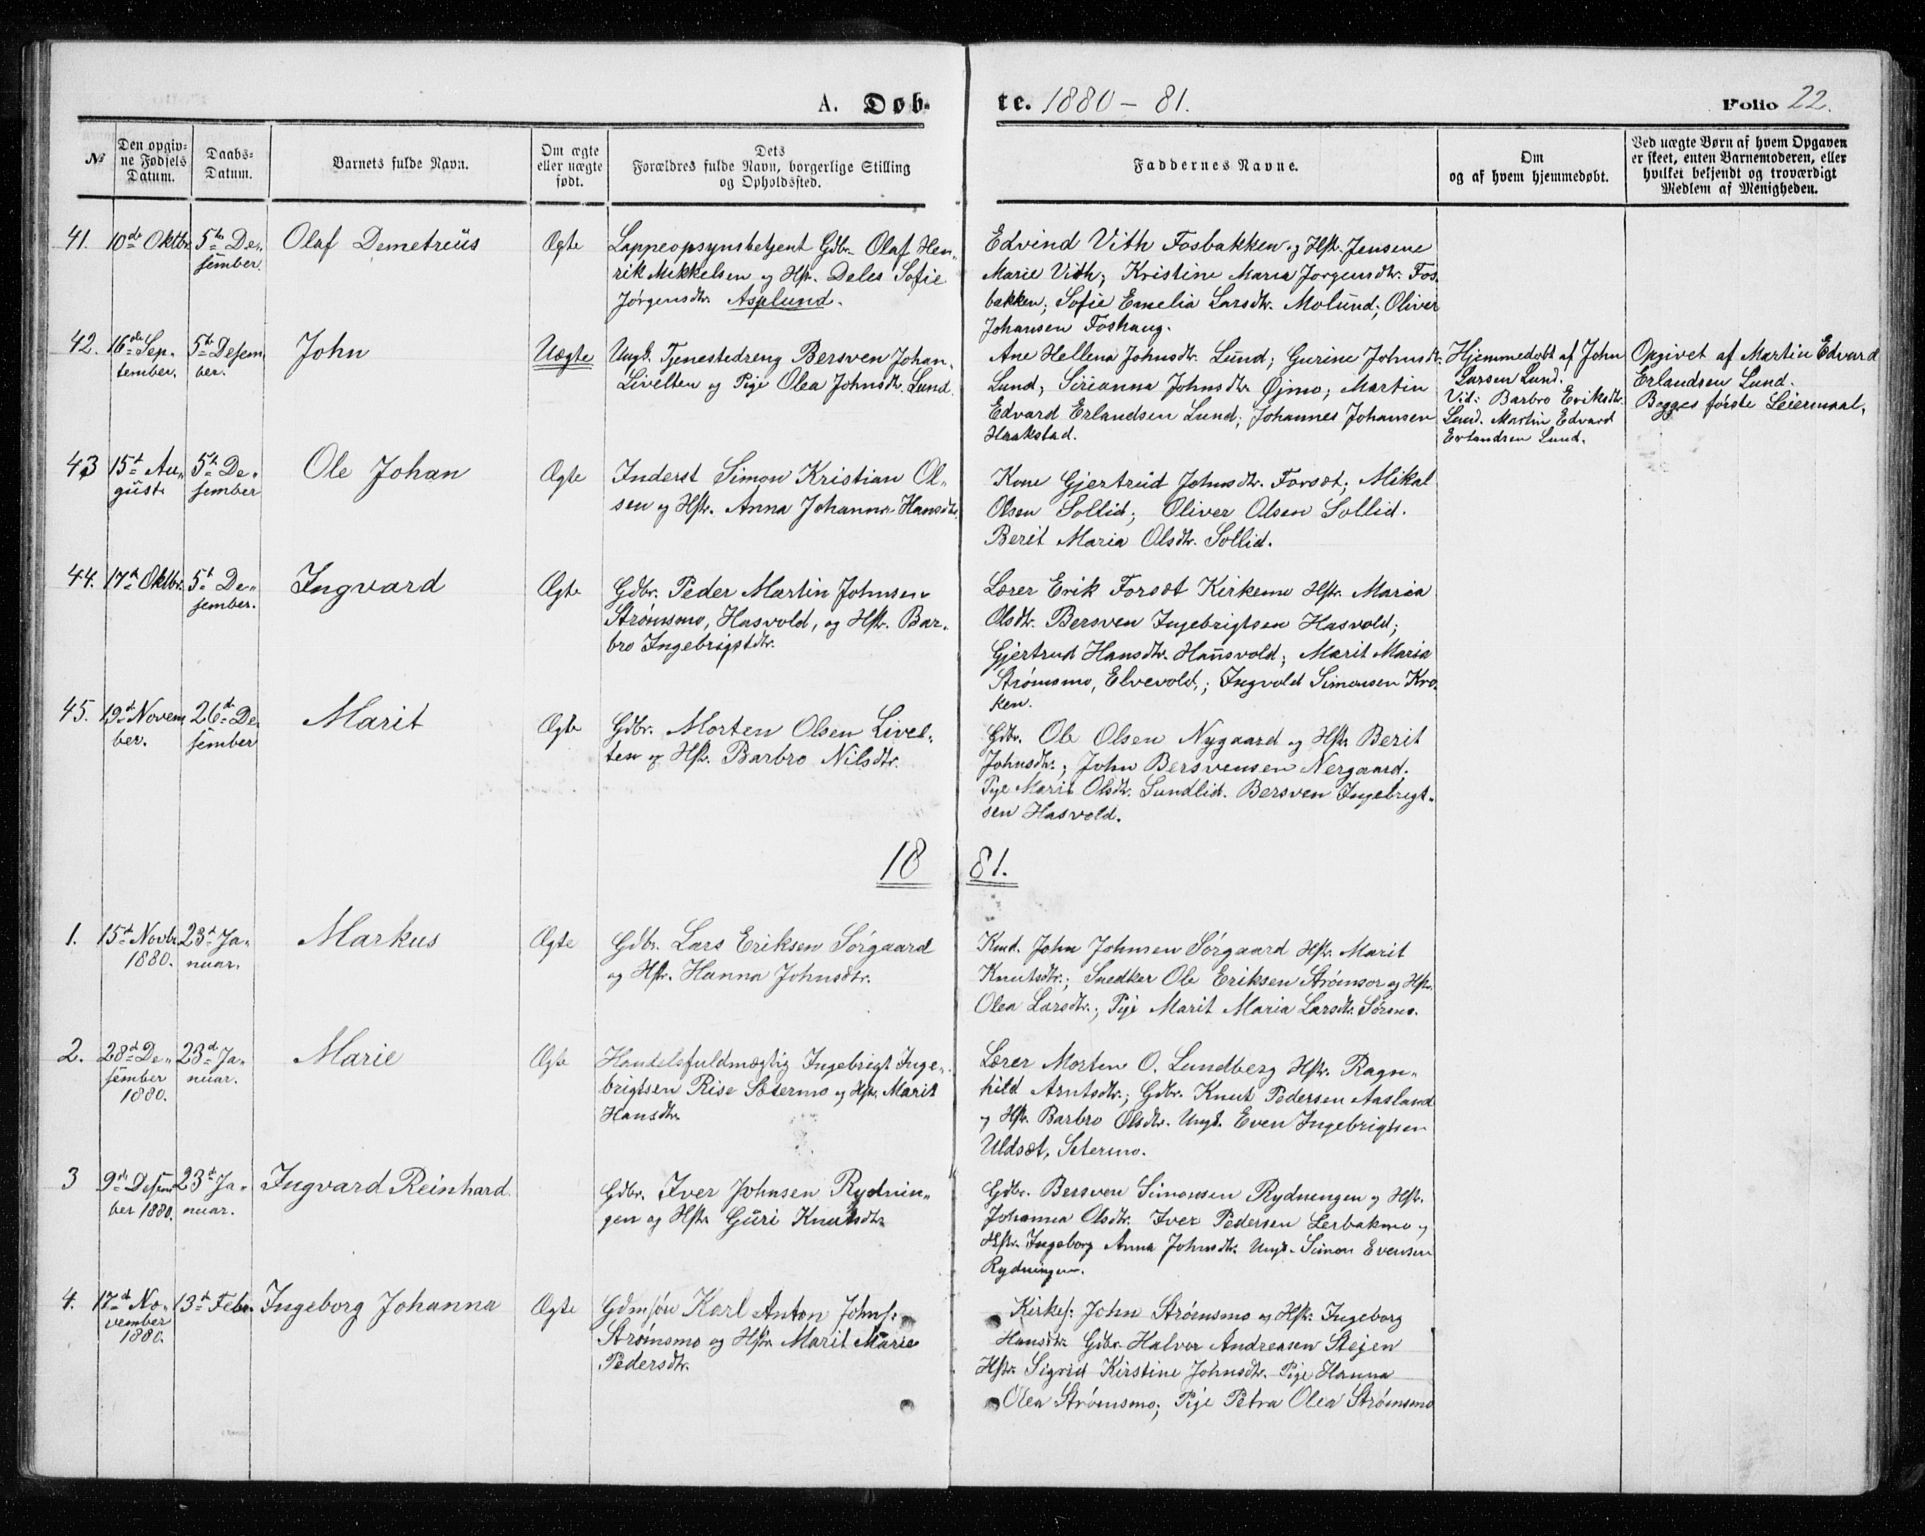 A. Døb- te. 1880 – 81. Folio 22.
No
Den opgiv-
ne Fødsels
Datum.
Daabs-
Datum.
Barnets fulde Navn.
Om ægte
eller uægte
født.
Dets
Forældres fulde Navn, borgerlige Stilling
og Opholdssted.
Faddernes Navne.
Om
og af hvem hjemmedøbt.
Ved uægte Børn af hvem Opgaven
er skeet, enten Barnemoderen, eller
hvilket bekjendt og troværdigt
Medlem af Menigheden.
41.
10de Oktbr.
5te De-
sember.
Olaf Demetreüs
Ægte
Lappeopsynsbetjent Gdbr. Olaf Hen-
rik Mikkelsen og Hstr. Deles Sofie
Jørgensdtr. Asplund.
Edvind Vith Fosbakken og Hstr. Jensine
Marie Vith; Kristine Maria Jorgensdtr. Fos-
bakken; Sofie Emelia Larsdtr. Molund; Oliver
Johansen Foshaug.
42.
16de Sep-
tember.
5te Desem-
ber.
John
Uægte
Ungk. Tjenestedreng Bersven Johan.
Livelten og Pige Olea Johnsdtr. Lund.
Ane Hellena Johnsdtr. Lund; Gurine Johnsdtr.
Lund; Sirianna Johnsdtr. Øjmo; Martin
Edvard Erlandsen Lund; Johannes Johansen
Hrakstad.
Hjemmedøbt af John
Larsen Lund.
Vid: Barbro Eriksdtr.
Lund. Martin Edvard
Erlandsen Lund.
Opgivet af Martin Edvard
Erlandsen Lund.
Begges første Leiermaal.
43
15de Au-
gust.
5te De-
sember
Ole Johan
Ægte
Inderst Simon Kristian Ol-
sen og Hstr. Anna Johanna Hansdtr.
Kone Gjertrud Johnsdtr. Forsæt; Mikal
Olsen Sollid; Oliver Olsen Sollid.
Berit Maria Olsdtr. Sollid.
44.
17de Oktbr.
5te De-
sember.
Ingvard
Ægte
Gdbr. Peder Martin Johnsen
Strømsmo, Hasvold, og Hstr. Bar-
bro Ingebrigtsdtr.
Lærer Erik Forsæt Kirkemo Hstr. Maria
Olsdtr. Bersven Ingebrigtsen Hasvold;
Gjertrud Hansdtr. Hansvold; Marit Maria
Strømsmo, Elvevold,; Ingvold Simonsen Kro-
ken.
45.
19de Novem-
ber.
26de De-
sember
Marit
Ægte
Gdbr. Morten Olsen Livel-
ten og Hstr. Barbro Nilsdtr.
Gdbr. Ole Olsen Nygaard og Hstr. Berit
Johnsdtr.; John Bersvensen Nergaard.
Pige Marit Olsdtr. Sundlid. Bersven Ingebrigt-
sen Hasvold.
18 81.
1.
15de Novbr.
1880.
23de Ja-
nuar.
Markus
Ægte
Gdbr. Lars Eriksen Sørgaard
og Hstr. Hanna Johnsdtr.
Kmd. John Johnsen Sørgaard Hstr. Marit
Knutsdtr.; Snedker Ole Eriksen Strømsor og Hstr.
Olea Larsdtr.; Pige Marit Maria Larsdtr. Sørmo.
2.
28de De-
sember
1880.
23de Ja-
nuar.
Marie
Ægte
Handelsfuldmægtig Ingebrigt Inge-
brigtsen Rise Sætermo og Hstr. Marit
Hansdtr.
Lærer Morten O. Lundberg Hstr. Ragn-
hild Arntsdtr.; Gdbr. Knut Pedersen Aasland
og Hstr. Barbro Olsdtr. Ungk. Even Ingebrigtsen
Uldsæt, Setermo.
3
9de Desem-
ber 1880.
23de Ja-
nuar.
Ingvard Reinhard.
Gdbr. Iver Johnsen Rydnin-
gen og Hstr. Guri Knutsdtr
Gdbr. Bersven Simonsen Rydningen og Hstr.
Johanna Olsdtr. Iver Pedersen Lerbakmo og
Hstr. Ingeborg Anna Johnsdtr. Ungk. Simon Evensen
Rydningen.
4.
17de No-
vember
1880.
13de Febr.
Ingeborg Johanna
Ægte
Gdmsøn Karl Anton Johns:
Strømsmo og Hstr. Marit Marie
Pedersdtr.
Kirkes: John Strømsmo og Hstr. Ingeborg
Hansdtr. Gdbr. Halvor Andreasen Stejen
Hstr. Sigrid Kirstine Johnsdtr. Pige Hanna
Olea Strømsmo; Pige Petra Olea Strømsmo